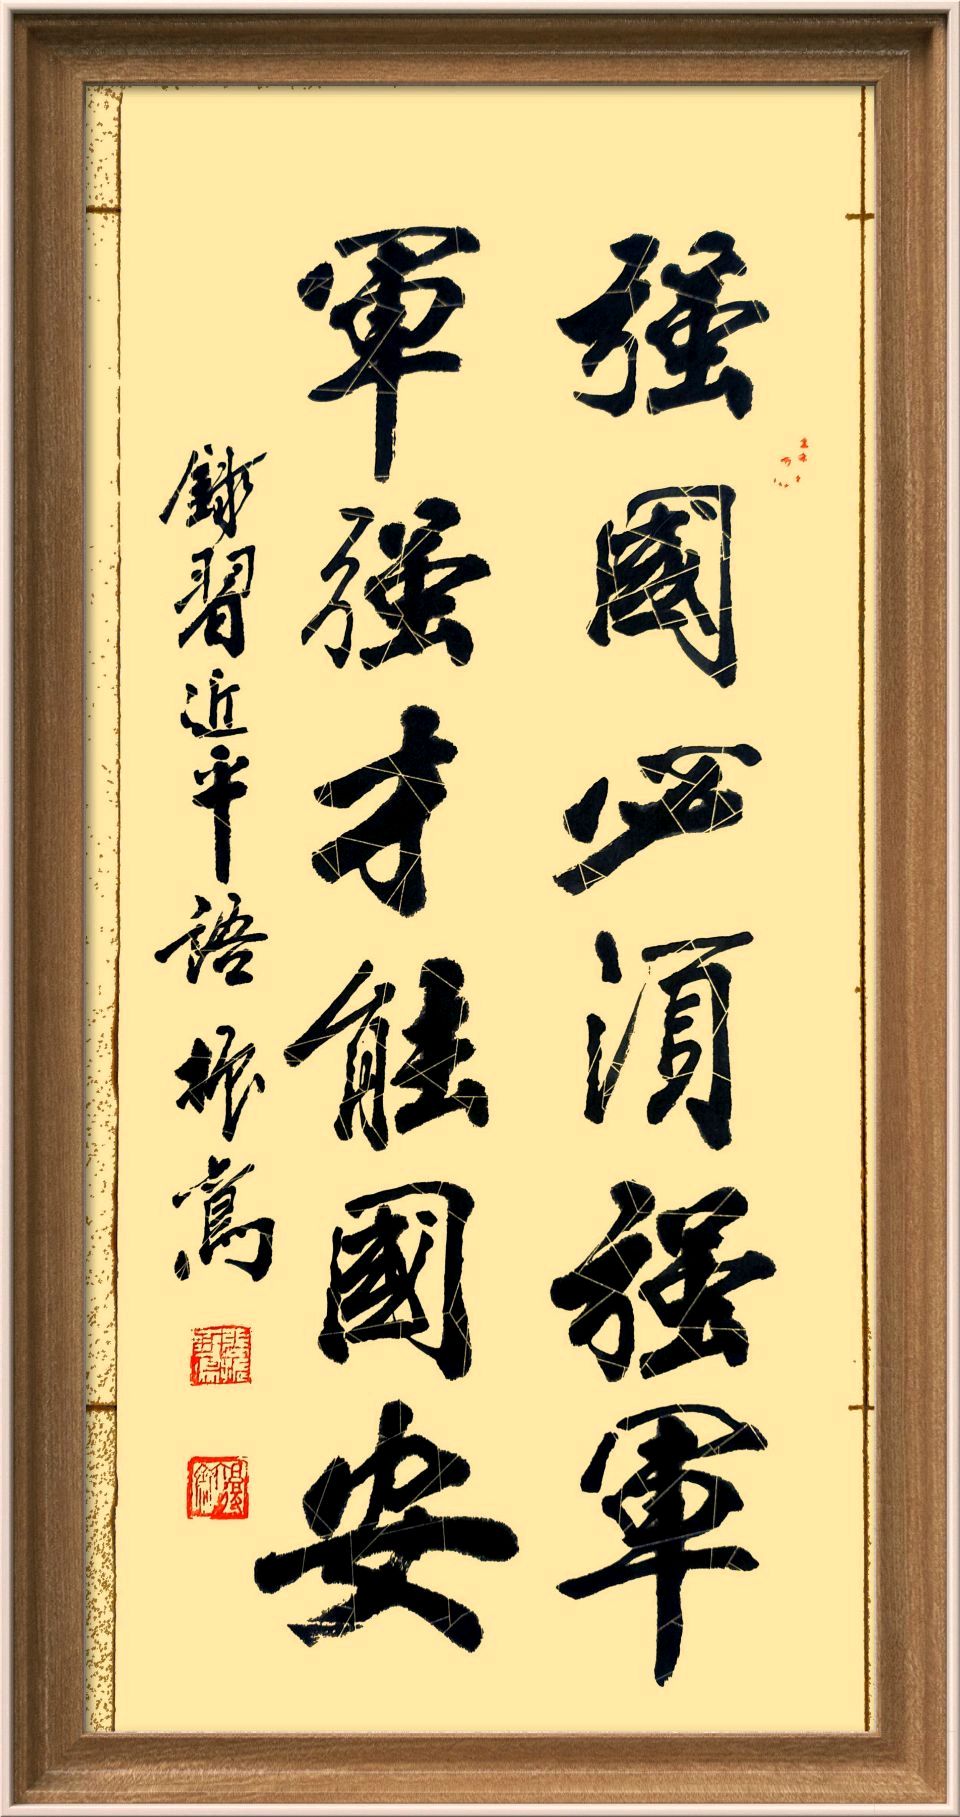 强國必須强軍
軍强才能國安
錄習近平語 振寫